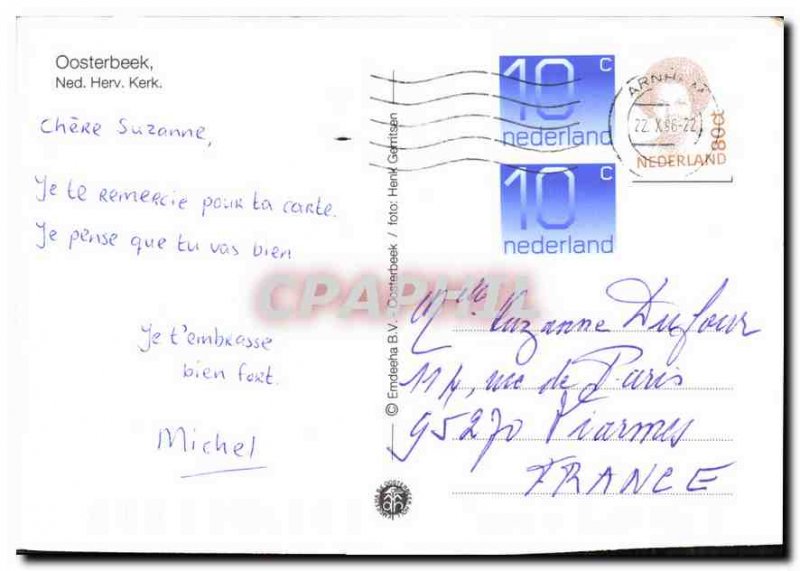 Oosterbeek,
Ned. Herv. Kerk.
Chère Suzanne,
Je te remercie pour ta carte.
Je pense que tu vas bien
Je t'embrasse
bien fort.
Michel
© Emdeeha B.V. - Oosterbeek / foto: Henk Gerritsen
10 c
nederland
10 c
nederland
ARNHEM
22.X.96-22
80ct
NEDERLAND
CPAPHIL
Mlle Suzanne Dufour
114, rue de Paris
95270 Viarmes
FRANCE